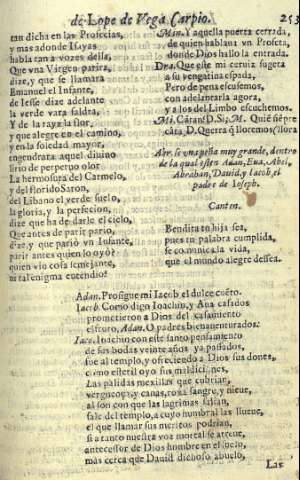 de Lope de Vega Carpio. 253
tan dicha en las Profecias,
y mas adonde Isayas
habla tan a vozes della,
Que vna Virgen parira
dize, y que se llamara
Emanuel el Infante,
de Iesse dize adelante
la verde vara saldra,
Y de la rayz la flor,
y que alegre en el camino,
y en la soledad mayor,
engendrara aquel diuino
lirio de perpetuo olor
La hermosura del Carmelo,
y del florido Saron,
del Libano el verde suelo,
la gloria, y la perfecion,
dize que ha de darle el cielo,
Que antes de parir pario,
dize, y que pario vn Infante,
parir antes quien lo oyo?
quien vio cosa semejante,
ni tal enigma entendio?
Min. Y aquella puerta cerrada,
de quien hablaua vn Profeta,
donde Dios hallo la entrada.
Dra. Que este mi ceruiz sugeta
a su vengatiua espada,
Pero de pena escusemos,
con adelantarla agora,
y a los del Limbo escuchemos.
Mi. Cātarā? D. Si, M. Quiē siēpre
cāta D. Querra q̄ lloremos (llora
Abrase vna peña muy grande, dentro
de la qual esten Adan, Eua, Abel,
Abrahan, Dauid, y Iacob el
padre de Ioseph.
Canten.
Bendita tu hija sea,
pues tu palabra cumplida,
se comunica la vida,
que el mundo alegre dessea.
Adan. Prosigue mi Iacob el dulce cuēto.
Iacob. Como digo Ioachin, y Ana casados
prometieron a Dios del casamiento
el fruto, Adan. O padres bienauenturados!
Iaco. Ioachin con este santo pensamiento
de sus bodas veinte años ya passados,
fue al templo, y ofreciendo a Dios sus dones,
como esteril oyo sus maldiciones.
Las palidas mexillas que cubrian,
verguença, y canas, rosa, sangre, y nieue,
al son con que las lagrimas salian,
sale del templo, a cuyo humbral las llueue,
el que llamar sus meritos podrian,
si a tanto nuestra voz mortal se atreue,
antecessor de Dios hombre en el suelo,
mas cerca que Dauid dichoso abuelo,
Las